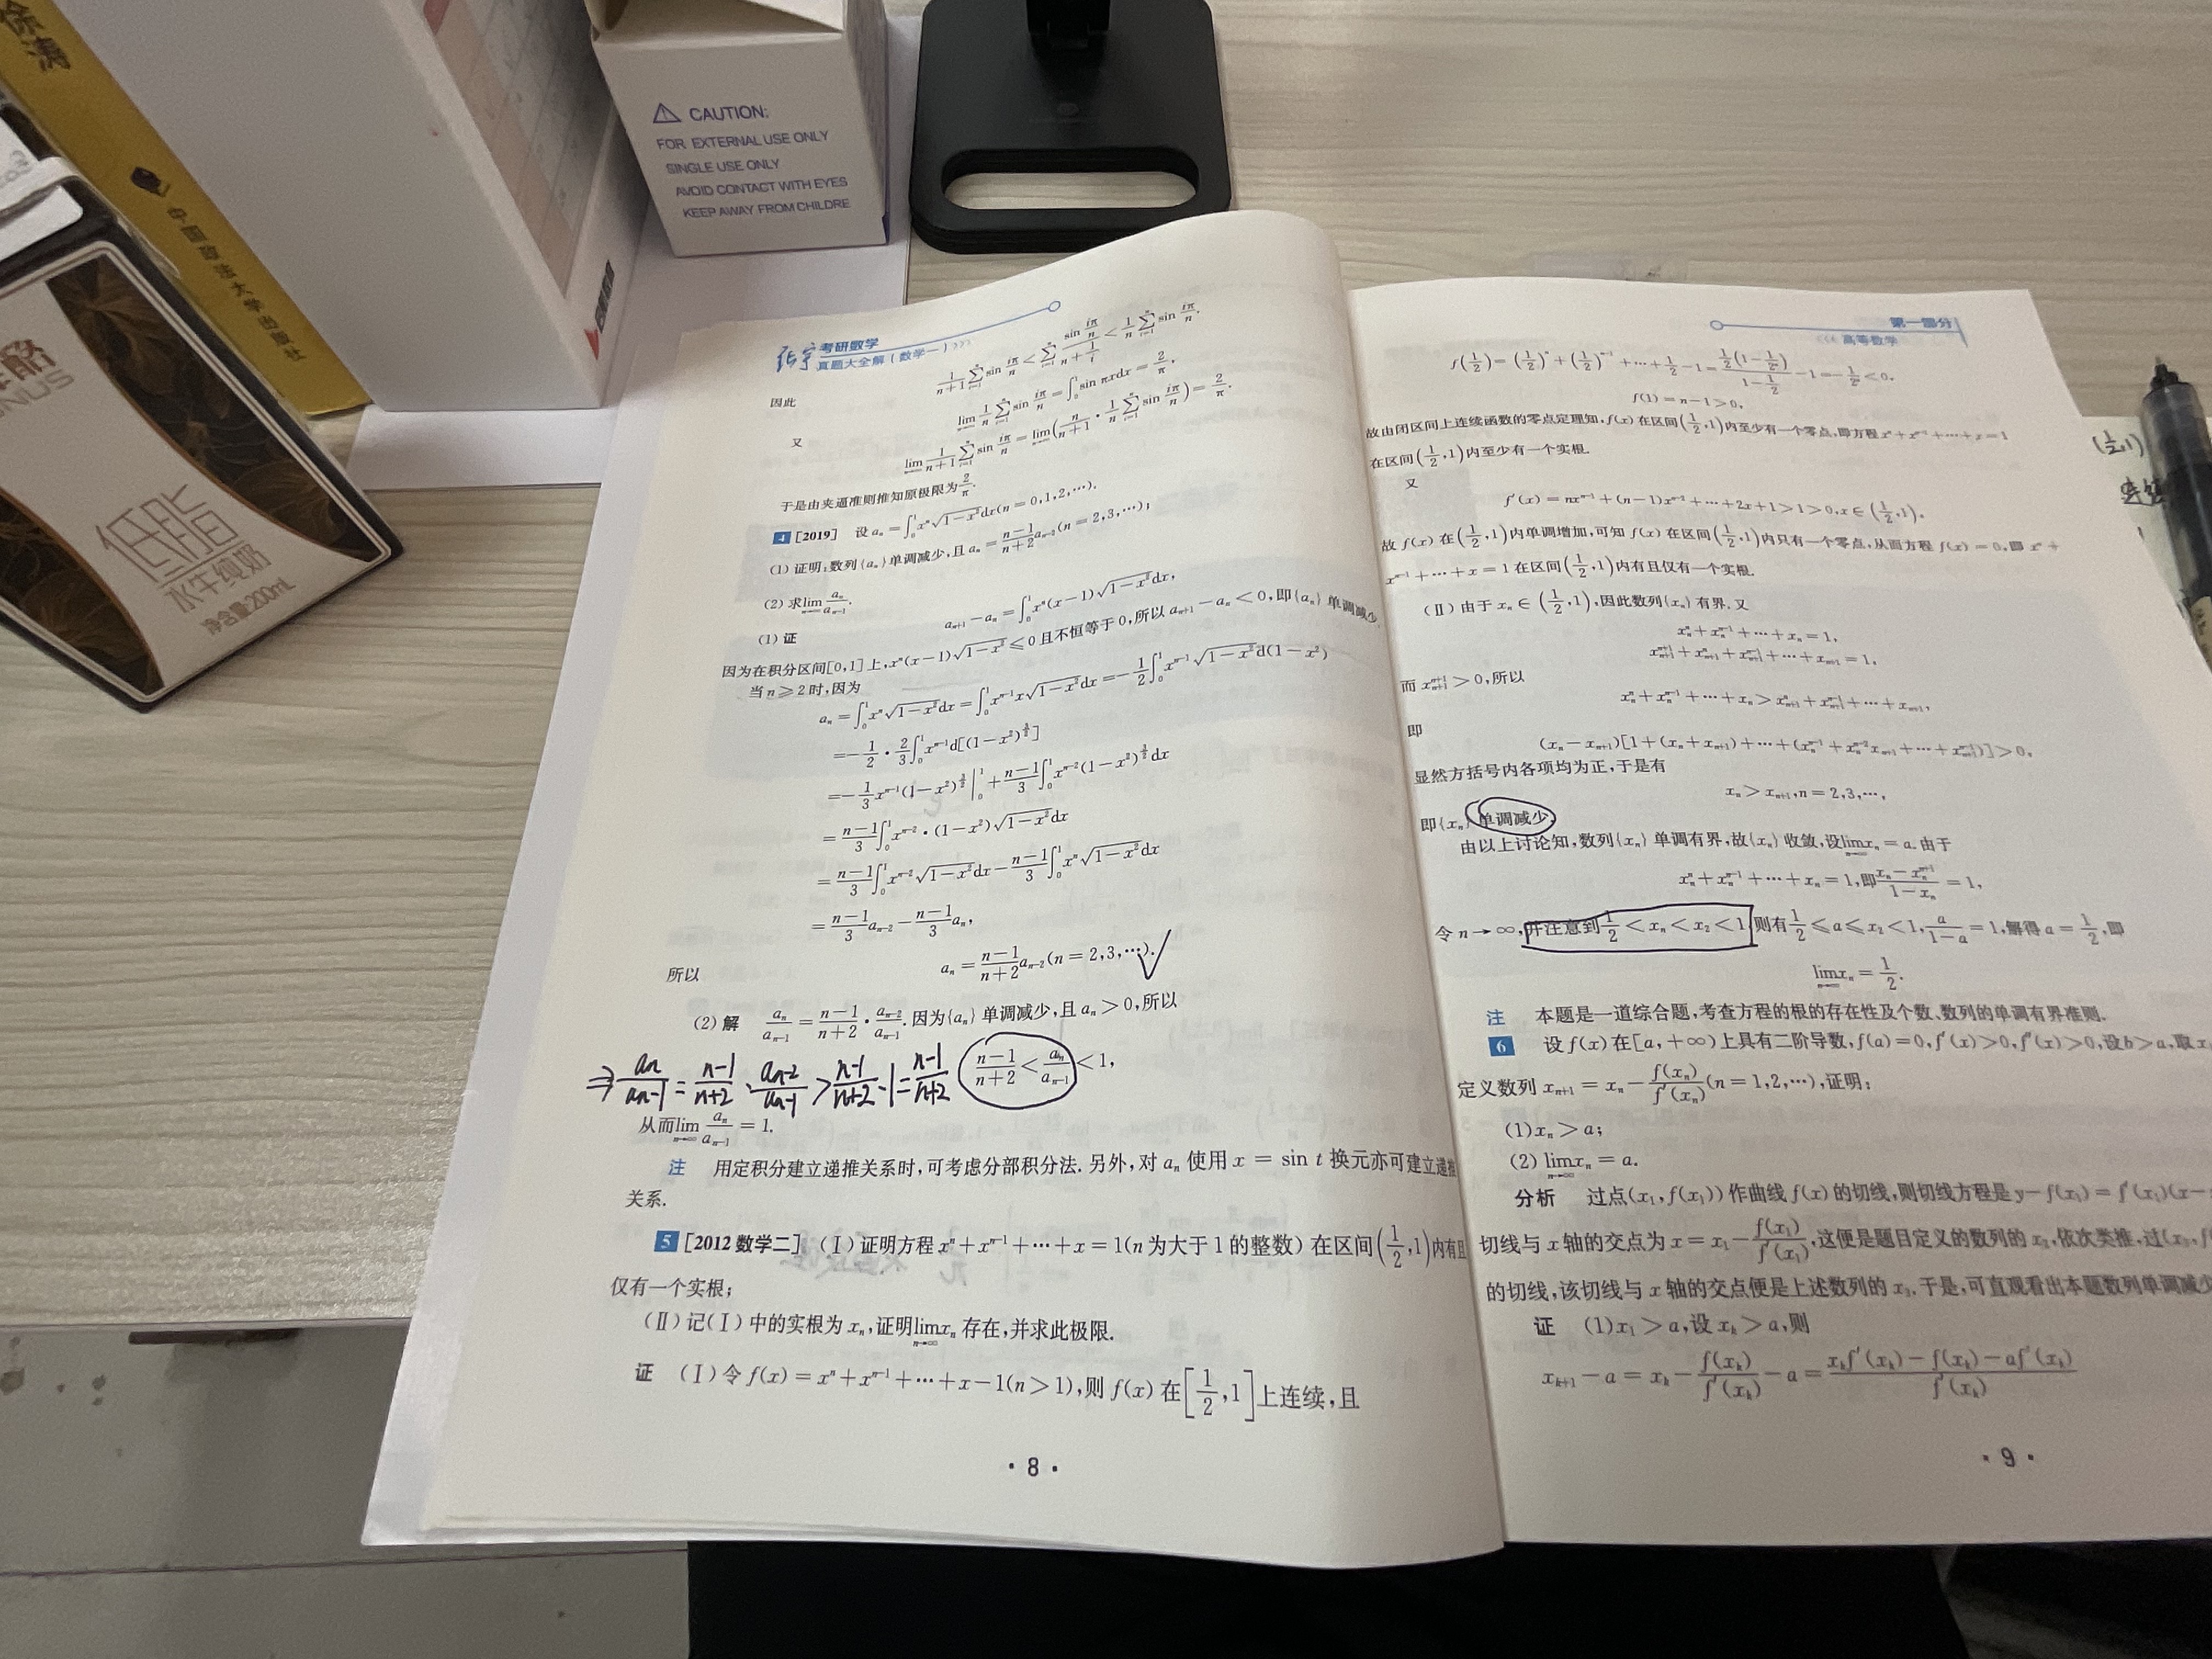 CAUTION:
FOR EXTERNAL USE ONLY
SINGLE USE ONLY
AVOID CONTACT WITH EYES
KEEP AWAY FROM CHILDRE
低脂
水牛纯奶
净含量200mL
张宇 考研数学
真题大全解(数学一)
$\frac{1}{n+1}\sum_{i=1}^{n}\sin\frac{i\pi}{n}<\sum_{i=1}^{n}\frac{\sin\frac{i\pi}{n}}{n+\frac{1}{i}}<\frac{1}{n}\sum_{i=1}^{n}\sin\frac{i\pi}{n}.$
因此
$\lim_{n\to\infty}\frac{1}{n}\sum_{i=1}^{n}\sin\frac{i\pi}{n}=\int_0^1\sin\pi x dx=\frac{2}{\pi},$
又
$\lim_{n\to\infty}\frac{1}{n+1}\sum_{i=1}^{n}\sin\frac{i\pi}{n}=\lim_{n\to\infty}\left(\frac{n}{n+1}\cdot\frac{1}{n}\sum_{i=1}^{n}\sin\frac{i\pi}{n}\right)=\frac{2}{\pi}.$
于是由夹逼准则推知原极限为$\frac{2}{\pi}$.
4 [2019] 设 $a_n=\int_0^1 x^n\sqrt{1-x^2}dx(n=0,1,2,\cdots).$
(1) 证明:数列{$a_n$}单调减少,且 $a_n=\frac{n-1}{n+2}a_{n-2}(n=2,3,\cdots)$;
(2) 求$\lim_{n\to\infty}\frac{a_n}{a_{n-1}}$.
(1) 证 $a_{n+1}-a_n=\int_0^1 x^n(x-1)\sqrt{1-x^2}dx,$
因为在积分区间[0,1]上,$x^n(x-1)\sqrt{1-x^2}\leqslant 0$ 且不恒等于0,所以 $a_{n+1}-a_n<0$,即{$a_n$}单调减少.
当 $n\geqslant 2$ 时,因为
$a_n=\int_0^1 x^n\sqrt{1-x^2}dx=\int_0^1 x^{n-1}x\sqrt{1-x^2}dx=-\frac{1}{2}\int_0^1 x^{n-1}\sqrt{1-x^2}d(1-x^2)$
$=-\frac{1}{2}\cdot\frac{2}{3}\int_0^1 x^{n-1}d[(1-x^2)^{\frac{3}{2}}]$
$=-\frac{1}{3}x^{n-1}(1-x^2)^{\frac{3}{2}}\Big|_0^1+\frac{n-1}{3}\int_0^1 x^{n-2}(1-x^2)^{\frac{3}{2}}dx$
$=\frac{n-1}{3}\int_0^1 x^{n-2}\cdot(1-x^2)\sqrt{1-x^2}dx$
$=\frac{n-1}{3}\int_0^1 x^{n-2}\sqrt{1-x^2}dx-\frac{n-1}{3}\int_0^1 x^n\sqrt{1-x^2}dx$
$=\frac{n-1}{3}a_{n-2}-\frac{n-1}{3}a_n,$
所以 $a_n=\frac{n-1}{n+2}a_{n-2}(n=2,3,\cdots).$
(2) 解 $\frac{a_n}{a_{n-1}}=\frac{n-1}{n+2}\cdot\frac{a_{n-2}}{a_{n-1}}$. 因为{$a_n$}单调减少,且 $a_n>0$,所以
$\Rightarrow\frac{a_n}{a_{n-1}}=\frac{n-1}{n+2}\cdot\frac{a_{n-2}}{a_{n-1}}>\frac{n-1}{n+2}\cdot 1=\frac{n-1}{n+2}$ $\frac{n-1}{n+2}<\frac{a_n}{a_{n-1}}<1,$
从而$\lim_{n\to\infty}\frac{a_n}{a_{n-1}}=1.$
注 用定积分建立递推关系时,可考虑分部积分法. 另外,对 $a_n$ 使用 $x=\sin t$ 换元亦可建立递推
关系.
5 [2012 数学二] (Ⅰ)证明方程 $x^n+x^{n-1}+\cdots+x=1$($n$ 为大于1的整数)在区间$\left(\frac{1}{2},1\right)$内有且
仅有一个实根;
(Ⅱ)记(Ⅰ)中的实根为 $x_n$,证明$\lim_{n\to\infty}x_n$存在,并求此极限.
证 (Ⅰ)令 $f(x)=x^n+x^{n-1}+\cdots+x-1(n>1)$,则 $f(x)$ 在$\left[\frac{1}{2},1\right]$上连续,且
· 8 ·
第一部分
高等数学
$f\left(\frac{1}{2}\right)=\left(\frac{1}{2}\right)^n+\left(\frac{1}{2}\right)^{n-1}+\cdots+\frac{1}{2}-1=\frac{\frac{1}{2}\left(1-\frac{1}{2^n}\right)}{1-\frac{1}{2}}-1=-\frac{1}{2^n}<0.$
$f(1)=n-1>0,$
故由闭区间上连续函数的零点定理知,$f(x)$ 在区间$\left(\frac{1}{2},1\right)$内至少有一个零点,即方程 $x^n+x^{n-1}+\cdots+x=1$
在区间$\left(\frac{1}{2},1\right)$内至少有一个实根.
又
$f'(x)=nx^{n-1}+(n-1)x^{n-2}+\cdots+2x+1>1>0,x\in\left(\frac{1}{2},1\right),$
故 $f(x)$ 在$\left(\frac{1}{2},1\right)$内单调增加,可知 $f(x)$ 在区间$\left(\frac{1}{2},1\right)$内只有一个零点,从而方程 $f(x)=0$,即 $x^n+$
$x^{n-1}+\cdots+x=1$ 在区间$\left(\frac{1}{2},1\right)$内有且仅有一个实根.
(Ⅱ)由于 $x_n\in\left(\frac{1}{2},1\right)$,因此数列{$x_n$}有界.又
$x_n^n+x_n^{n-1}+\cdots+x_n=1,$
$x_{n+1}^{n+1}+x_{n+1}^n+x_{n+1}^{n-1}+\cdots+x_{n+1}=1,$
而 $x_{n+1}^{n+1}>0$,所以
$x_n^n+x_n^{n-1}+\cdots+x_n>x_{n+1}^n+x_{n+1}^{n-1}+\cdots+x_{n+1},$
即
$(x_n-x_{n+1})[1+(x_n+x_{n+1})+\cdots+(x_n^{n-1}+x_n^{n-2}x_{n+1}+\cdots+x_{n+1}^{n-1})]>0,$
显然方括号内各项均为正,于是有
$x_n>x_{n+1},n=2,3,\cdots,$
即{$x_n$}单调减少.
由以上讨论知,数列{$x_n$}单调有界,故{$x_n$}收敛,设$\lim_{n\to\infty}x_n=a$.由于
$x_n^n+x_n^{n-1}+\cdots+x_n=1$,即$\frac{x_n-x_n^{n+1}}{1-x_n}=1,$
令 $n\to\infty$,并注意到$\frac{1}{2}<x_n<x_2<1$,则有$\frac{1}{2}\leqslant a\leqslant x_2<1,\frac{a}{1-a}=1$,解得 $a=\frac{1}{2}$,即
$\lim_{n\to\infty}x_n=\frac{1}{2}.$
注 本题是一道综合题,考查方程的根的存在性及个数、数列的单调有界准则.
6 设 $f(x)$ 在$[a,+\infty)$上具有二阶导数,$f(a)=0,f'(x)>0,f''(x)>0$,设$b>a$,取
定义数列 $x_{n+1}=x_n-\frac{f(x_n)}{f'(x_n)}(n=1,2,\cdots)$,证明:
(1)$x_n>a$;
(2) $\lim_{n\to\infty}x_n=a.$
分析 过点$(x_1,f(x_1))$作曲线 $f(x)$ 的切线,则切线方程是 $y-f(x_1)=f'(x_1)(x-$
切线与 $x$ 轴的交点为 $x=x_1-\frac{f(x_1)}{f'(x_1)}$,这便是题目定义的数列的 $x_2$,依次类推,过$(x_2,f$
的切线,该切线与 $x$ 轴的交点便是上述数列的 $x_3$,于是,可直观看出本题数列单调减少
证 (1)$x_1>a$,设 $x_k>a$,则
$x_{k+1}-a=x_k-\frac{f(x_k)}{f'(x_k)}-a=\frac{x_kf'(x_k)-f(x_k)-af'(x_k)}{f'(x_k)}$
· 9 ·
$(\frac{1}{2},1)$